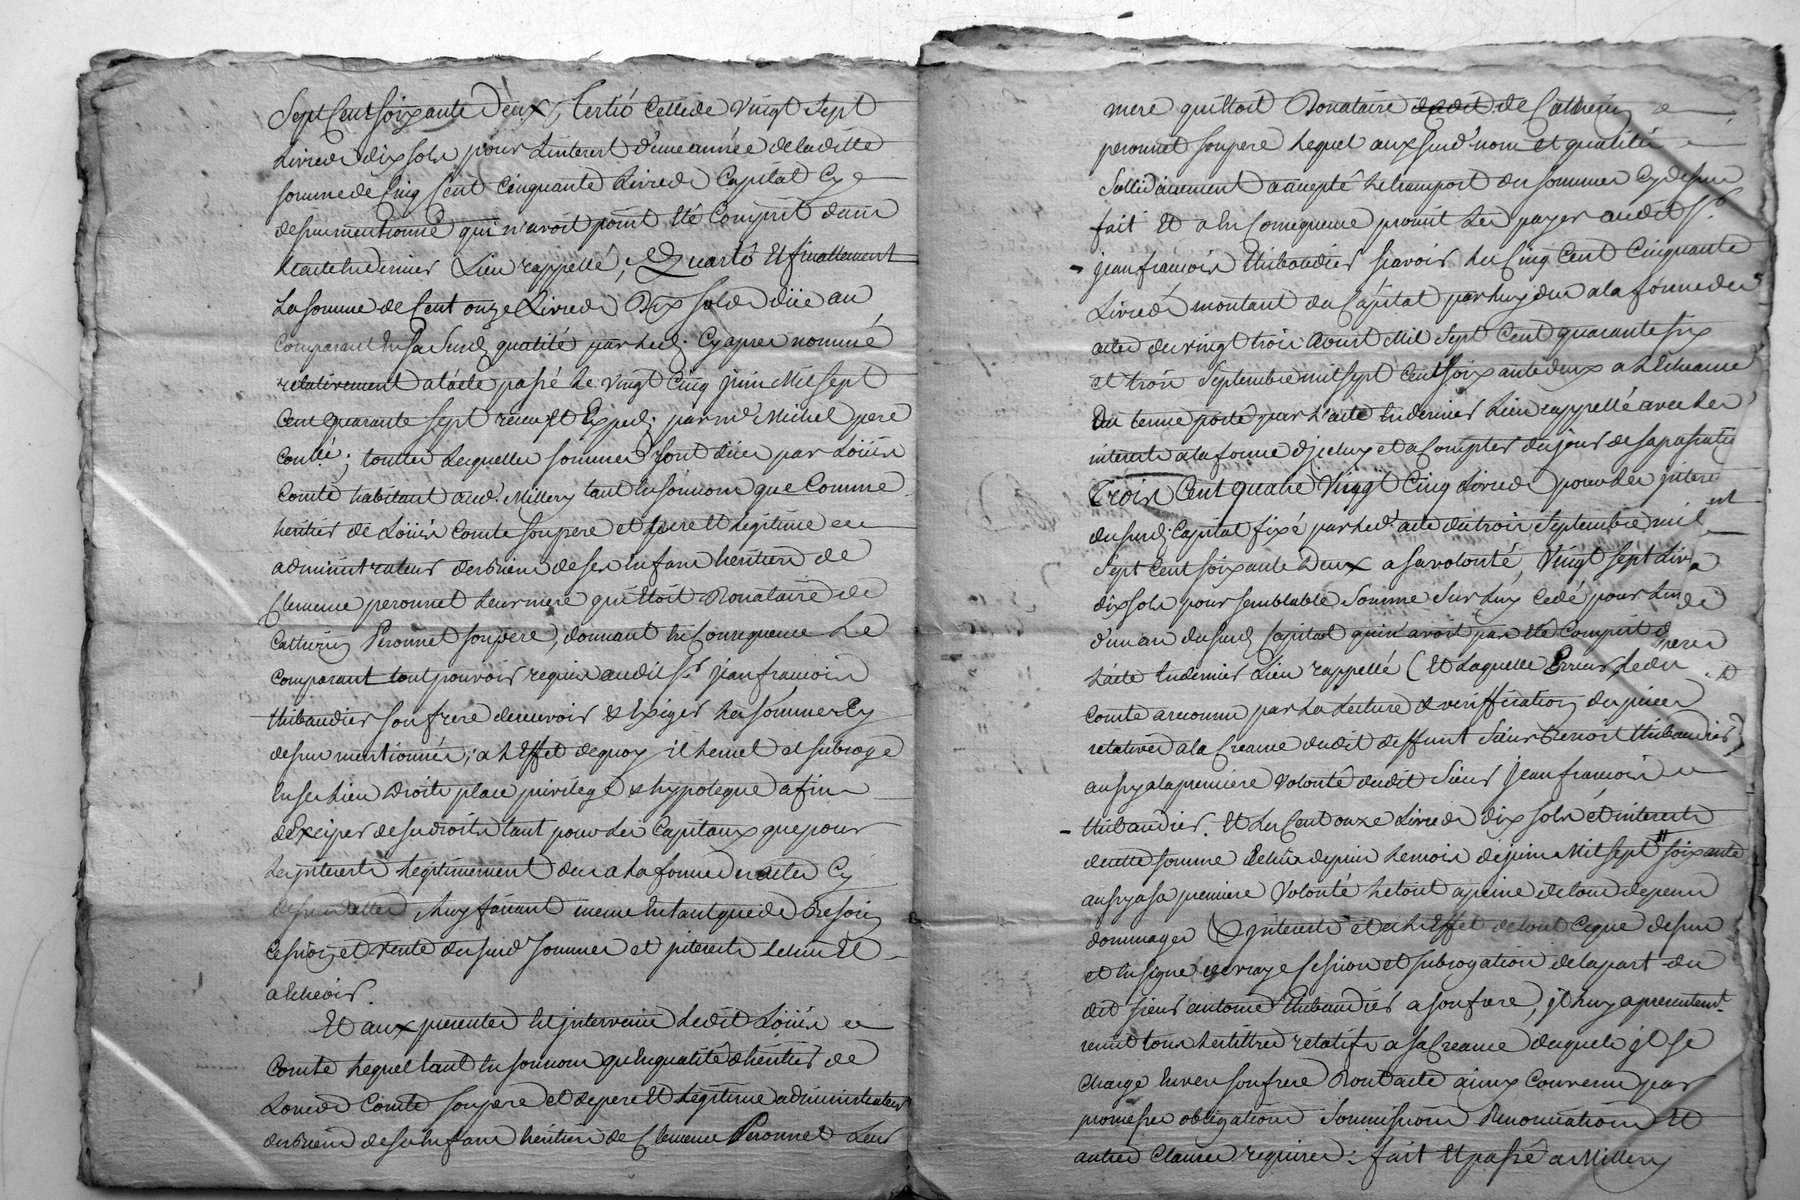 Sept Cent soixante deux, Tertiò Celle de vingt Sept
Livres dix sols pour Linterest d'une année de laditte
somme de Cinq Cent Cinquante Livres de Capital Cy
dessus mentionné qui n'avoit point Eté Compris dans
Lacte En dernier Lieu rappellé, Quartò Et finallement
La somme de Cent onze Livres Dix sols düe au
Comparant En sa Susd. qualité par Led. Cy apres nommé
relativement a l'acte passé Le vingt Cinq juin Mil sept
Cent quarante sept receu Et Exped. par me Michel pere
toutes Lesquelles sommes sont dües par Loüis
Comte habitant aud. Millery tant En son nom que Comme
heritier de Loüis Comte son pere et pere Et Legitime
administrateur des Biens de ses Enfans heritiers de
Clemence peronnet Leur mere qui Etoit Donataire de
Catherin Peronnet son pere, donnant En Consequence Le
Comparant tout pouvoir requis audit Sr. jean françois
thibaudier son frere de recevoir & Exiger Les sommes Cy
dessus mentionnées; a L'Effet de quoy il Le met et subroge
En ses Lieu Droits place privilege & hypoteque afin
d'Exciper de ses droits tant pour Les Capitaux que pour
Les interests Legitimement dus a La forme des actes Cy
dessus dattés, Luy faisant meme En tant que de Besoin
Cession et vente des susd. sommes et interests Echus Et
a Echeoir.
Et aux presentes Est intervenu Ledit Loüis
Comte Lequel tant En son nom qu'En qualité d'heritier de
Loüis Comte son pere et de pere Et Legitime administrateur
des Biens de ses Enfans heritiers de Clemence Peronnet Leur
mere qui Etoit Donataire dudit de Catherin
peronnet son pere Lequel aux susd. nom et qualités
Sollidairement a accepté Le transport des sommes Cy dessus
fait Et a En Consequence promis Les payer audit Sr.
jean françois thibaudier sçavoir Les Cinq Cent Cinquante
Livres montant du Capital par Luy dus a la forme des
actes du vingt trois Aoust Mil Sept Cent quarante six
et trois Septembre mil sept Cent soixante deux a L'Echeance
du terme porté par L'acte En dernier Lieu rappellé avec Les
interests a la forme d'jceluy et a Compter du jour de sa passation
Trois Cent quatre Vingt Cinq Livres pour Les interests
du susd. Capital fixé par Led. acte du trois Septembre mil
Sept Cent soixante Deux a sa volonté, Vingt sept Livres
dix sols pour semblable somme sur Luy Cedé pour
d'un an du susd. Capital qui n'avoit pas Eté Compris
L'acte En dernier Lieu rappellé (Et Laquelle Erreur Ledit
Comte a reconnu par La Lecture & veriffication des pieces
relatives a la Creance dudit deffunt Sieur Benoist thibaudier)
aussy a la premiere volonté dudit Sieur jean françois
thibaudier. Et Les Cent onze Livres dix sols et interests
de cette somme Echus depuis Le mois de juin Mil sept soixante
aussy a sa premiere volonté Le tout a peine de tous depens
dommages & interests et a L'Effet de tout Ce que dessus
et En signe de vraye Cession et subrogation de la part du
dit sieur antoine thibaudier a son frere, jl Luy a presentement
remis tous Les tittres relatifs a sa Creance desquels jl se
Charge Envers son frere Dont acte ainsy Convenu par
promesses obligations Soumissions Renonciations Et
autres Clauses requises: fait Et passé a Millery